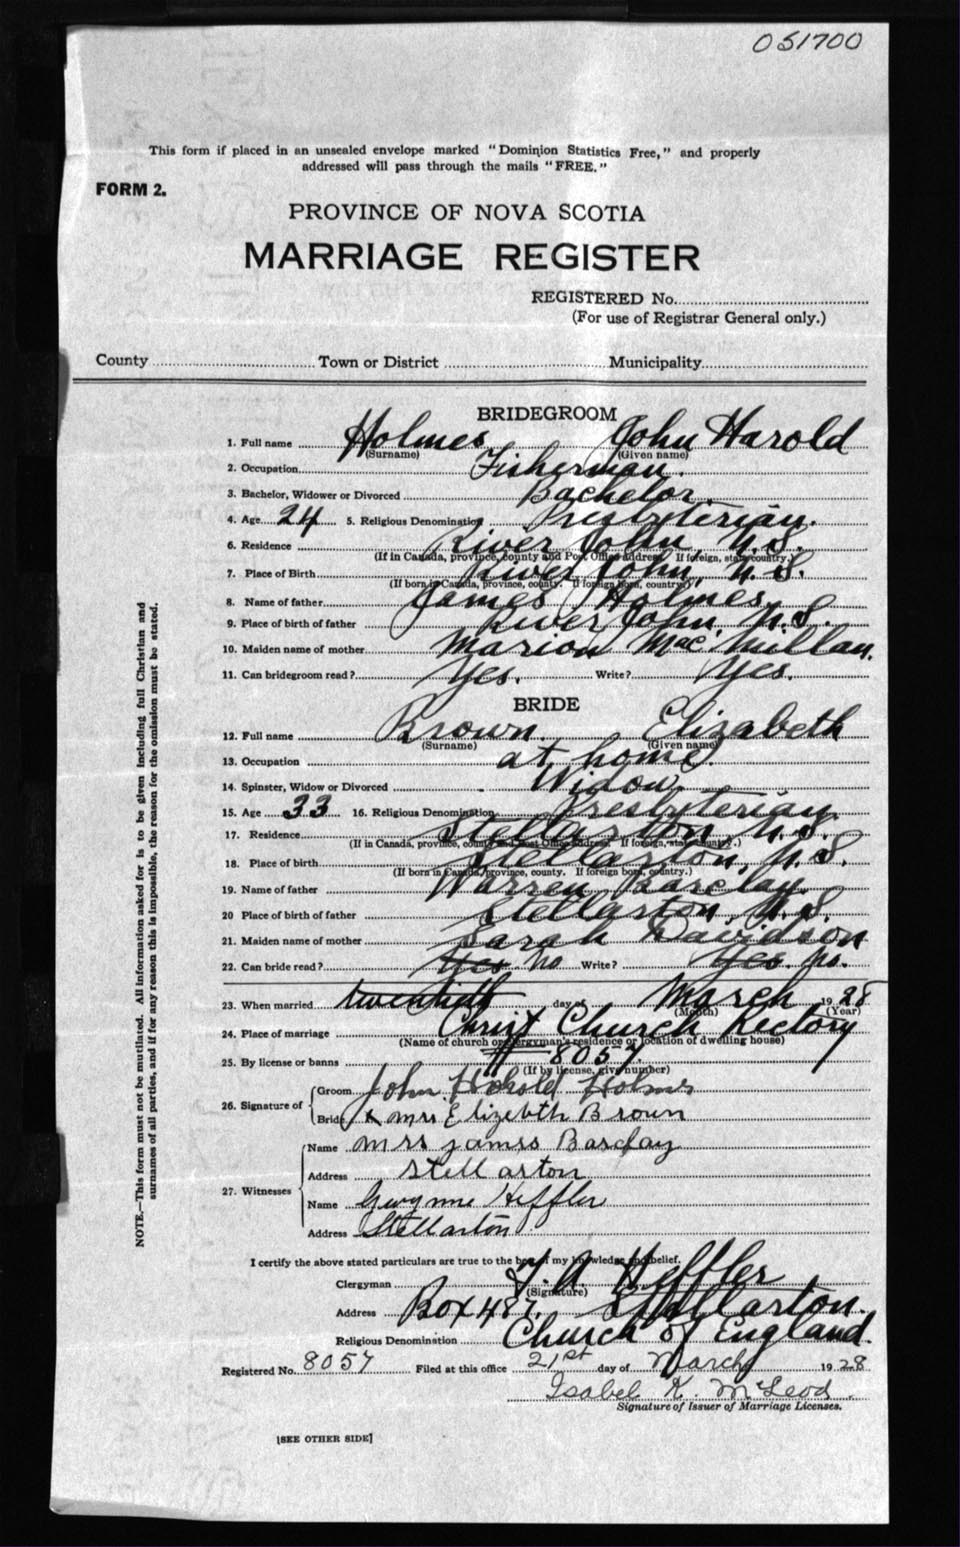 051700
This form if placed in an unsealed envelope marked "Dominion Statistics Free," and properly
addressed will pass through the mails "FREE."
FORM 2.
PROVINCE OF NOVA SCOTIA
MARRIAGE REGISTER
REGISTERED No.
(For use of Registrar General only.)
County Town or District Municipality
BRIDEGROOM
1. Full name Holmes John Harold
(Surname) (Given name)
2. Occupation Fisherman.
3. Bachelor, Widower or Divorced Bachelor.
4. Age 24 5. Religious Denomination Presbyterian.
6. Residence River John N.S.
(If in Canada, province, county and Post Office address. If foreign, state country.)
7. Place of Birth River John, N.S.
(If born in Canada, province, county. If foreign born, country.)
8. Name of father James Holmes.
9. Place of birth of father River John N.S.
10. Maiden name of mother Marion MacMillan.
11. Can bridegroom read? Yes. Write? Yes.
BRIDE
12. Full name Brown. Elizabeth
(Surname) (Given name)
13. Occupation at home
14. Spinster, Widow or Divorced Widow.
15. Age 33 16. Religious Denomination Presbyterian.
17. Residence Stellarton N.S.
(If in Canada, province, county and Post Office address. If foreign, state country.)
18. Place of birth Stellarton, N.S.
(If born in Canada, province, county. If foreign born, country.)
19. Name of father Warren Barclay.
20 Place of birth of father Stellarton N.S.
21. Maiden name of mother Sarah Davidson
22. Can bride read? Yes no Write? Yes. no.
23. When married twentieth day of March 1928
(Month) (Year)
24. Place of marriage Christ Church Rectory
(Name of church or clergyman's residence or location of dwelling house)
25. By license or banns # 8057
(If by license, give number)
26. Signature of
Groom John Harold Holmes
Bride X Mrs Elizebth Brown
27. Witnesses
Name Mrs James Barclay
Address Stellarton
Name Gwynne Heffler
Address Stellarton
I certify the above stated particulars are true to the best of my knowledge and belief.
Clergyman A Heffler
(Signature)
Address Box 487. Stellarton.
Religious Denomination Church of England.
Registered No. 8057 Filed at this office 21st day of March 1928
Isabel K. McLeod
Signature of Issuer of Marriage Licenses.
[SEE OTHER SIDE]
NOTE.—This form must not be mutilated. All information asked for is to be given including full Christian and
surnames of all parties, and if for any reason this is impossible, the reason for the omission must be stated.